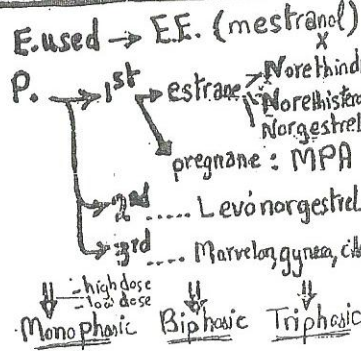 E.used → E.E. (mestranol)
x
P. → 1st → estrane Norethind
Norethistero
Norgestrel
pregnane : MPA
→ 2nd ..... Levonorgestrel
→ 3rd ..... Marvelon, gynera, cil
- high dose
- low dose
Monophasic Biphasic Triphasic